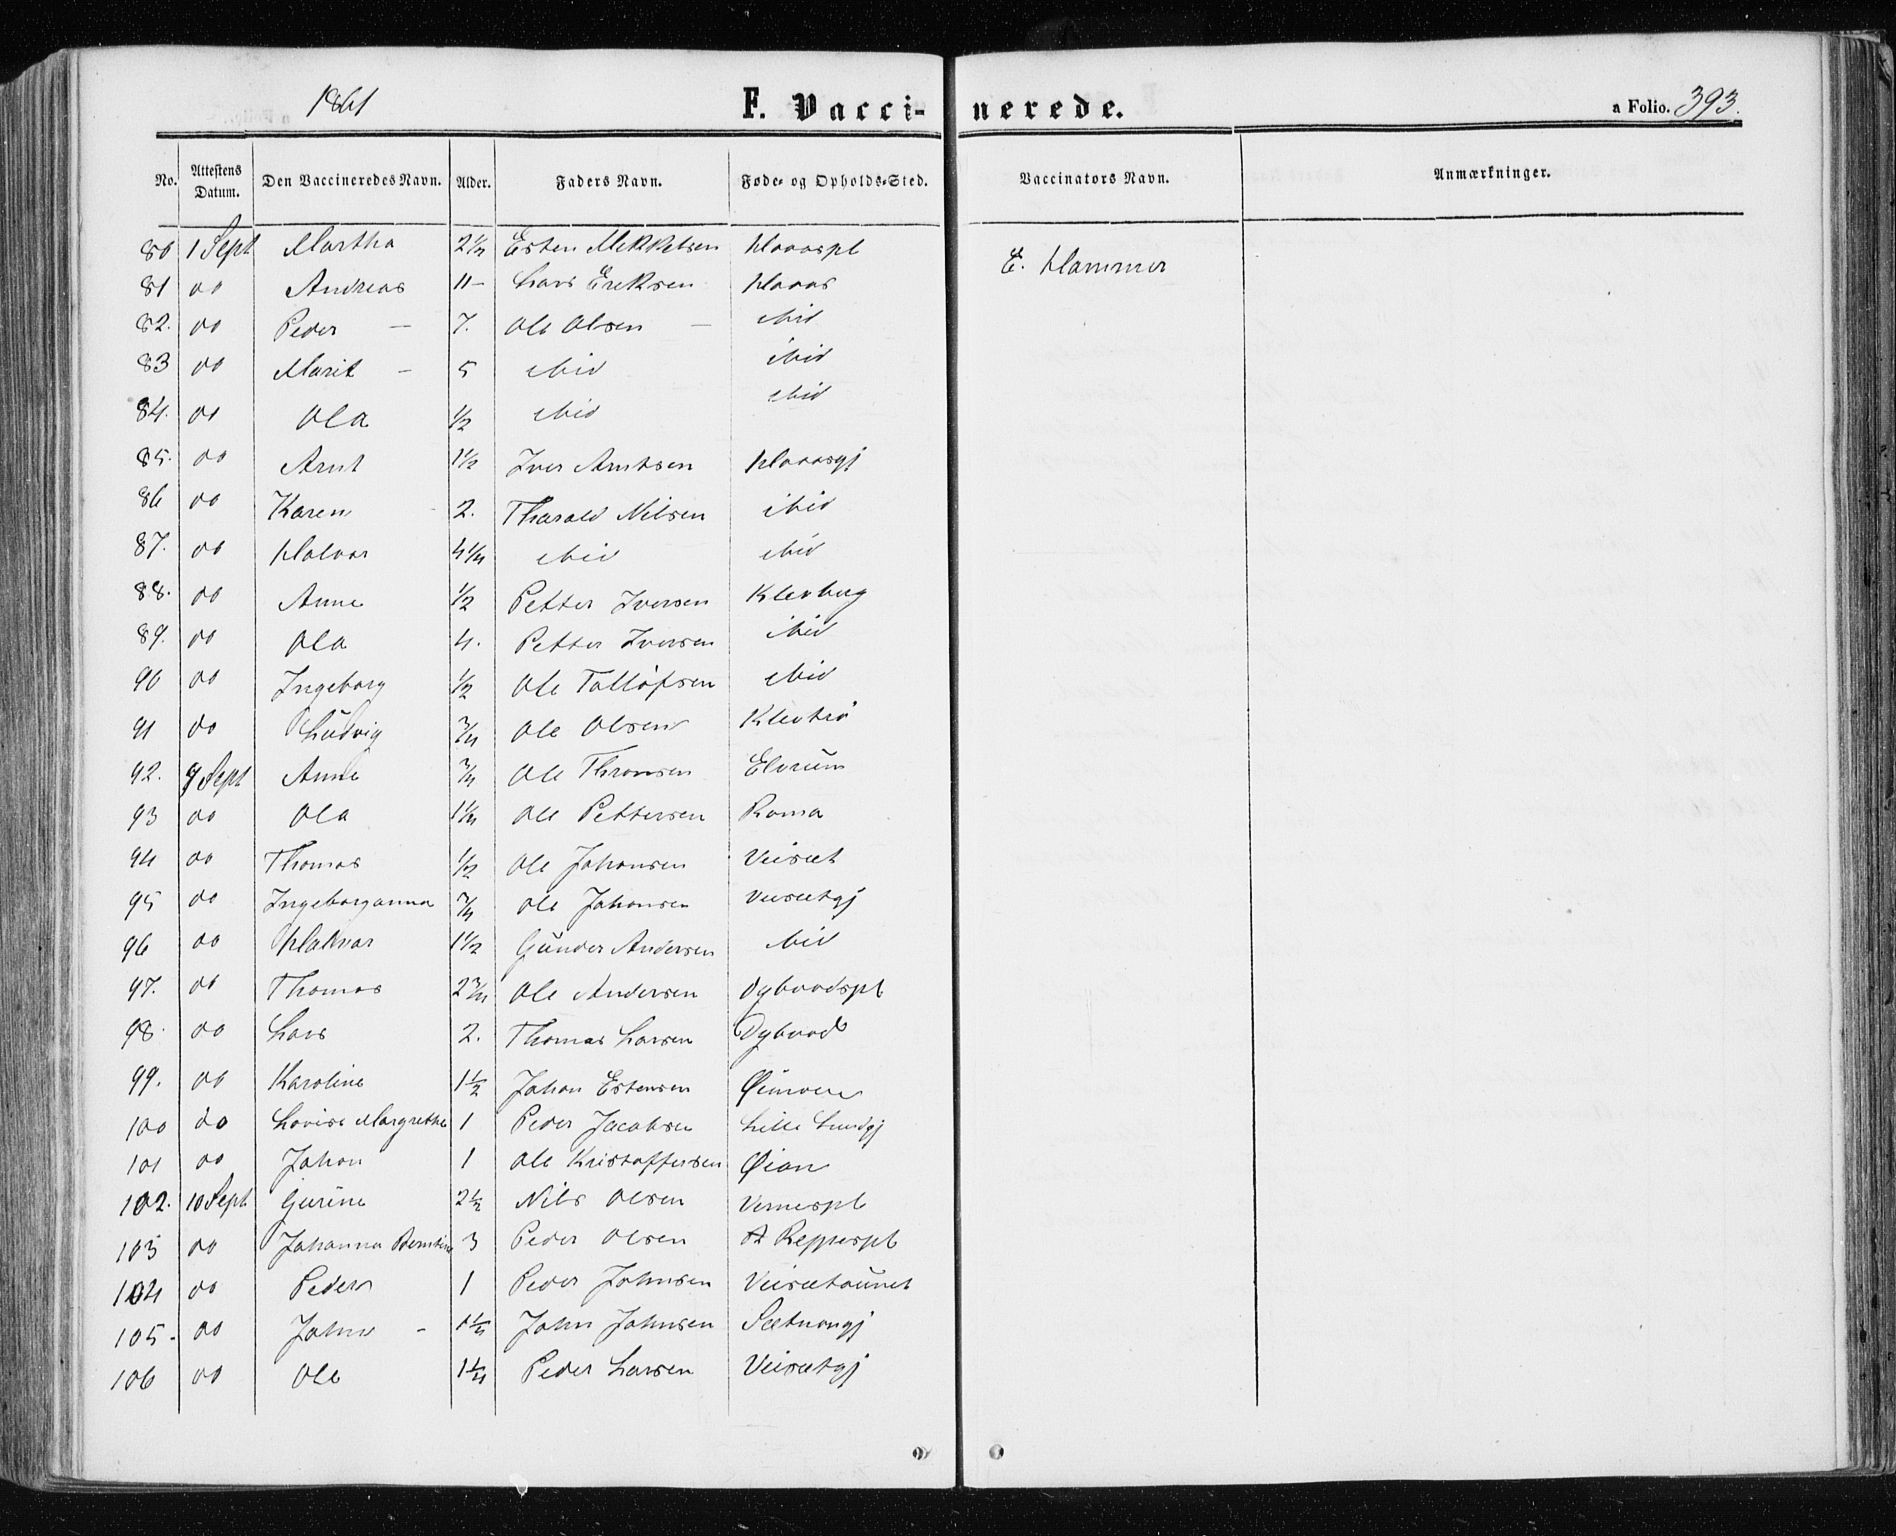 1861 F. Vacci- nerede. a Folio. 393.
No. Attestens Datum. Den Vaccineredes Navn. Alder. Faders Navn. Føde- og Opholds-Sted. Vaccinators Navn. Anmærkninger.
80 1 Sept Martha 2 1/4 Esten Mikkelsen Haaaspl E. Hammer
81 do Andreas 11 – Lars Eriksen Haaas
82. do Peder – 7. Ole Olsen – ibid
83 do Marit – 5 ibid ibid
84. do Ola 1/2 ibid ibid
85. do Arnt 1 1/2 Iver Arntsen Haaasgj
86 do Karen 2. Tharald Nilsen ibid
87. do Halvor 4 1/4 ibid ibid
88. do Anne 1/2 Petter Iversen Klevberg
89. do Ola 4. Petter Iversen ibid
90 do Ingeborg 1/2 Ole Tolløfsen ibid
91 do Ludvig 3/4 Ole Olsen
92. 9 Sept Anne 3/4 Ole Thronsen Elvrum
93 do Ola 1 1/4 Ole Pettersen Roma
94 do Thomas 1/2 Ole Johansen Veisæt
95 do Ingeborganna 3/4 Ole Johansen Veisætgj
96 do Halvor 1 1/2 Gunder Andersen ibid
97. do Thomas 2 3/4 Ole Andersen Dybvadspl
98. do Lars 2. Thomas Larsen Dybvad
99. do Karoline 1 1/2 Johan Estensen
100 do Lovise Margrethe 1 Peder Jacobsen Lille Lundgj
101 do Johan 1 Ole Kristoffersen Øian
102. 10 Sept Gurine 2 1/2 Nils Olsen Vernespl
103 do Johanna Berntine 3 Peder Olsen Reppespl
104 do Peder 1 Peder Johnsen Veisætaunet
105. do John – 1 1/4 John Johnsen Sætnangj
106 do Ole 1 1/4 Peder Larsen Veisætgj